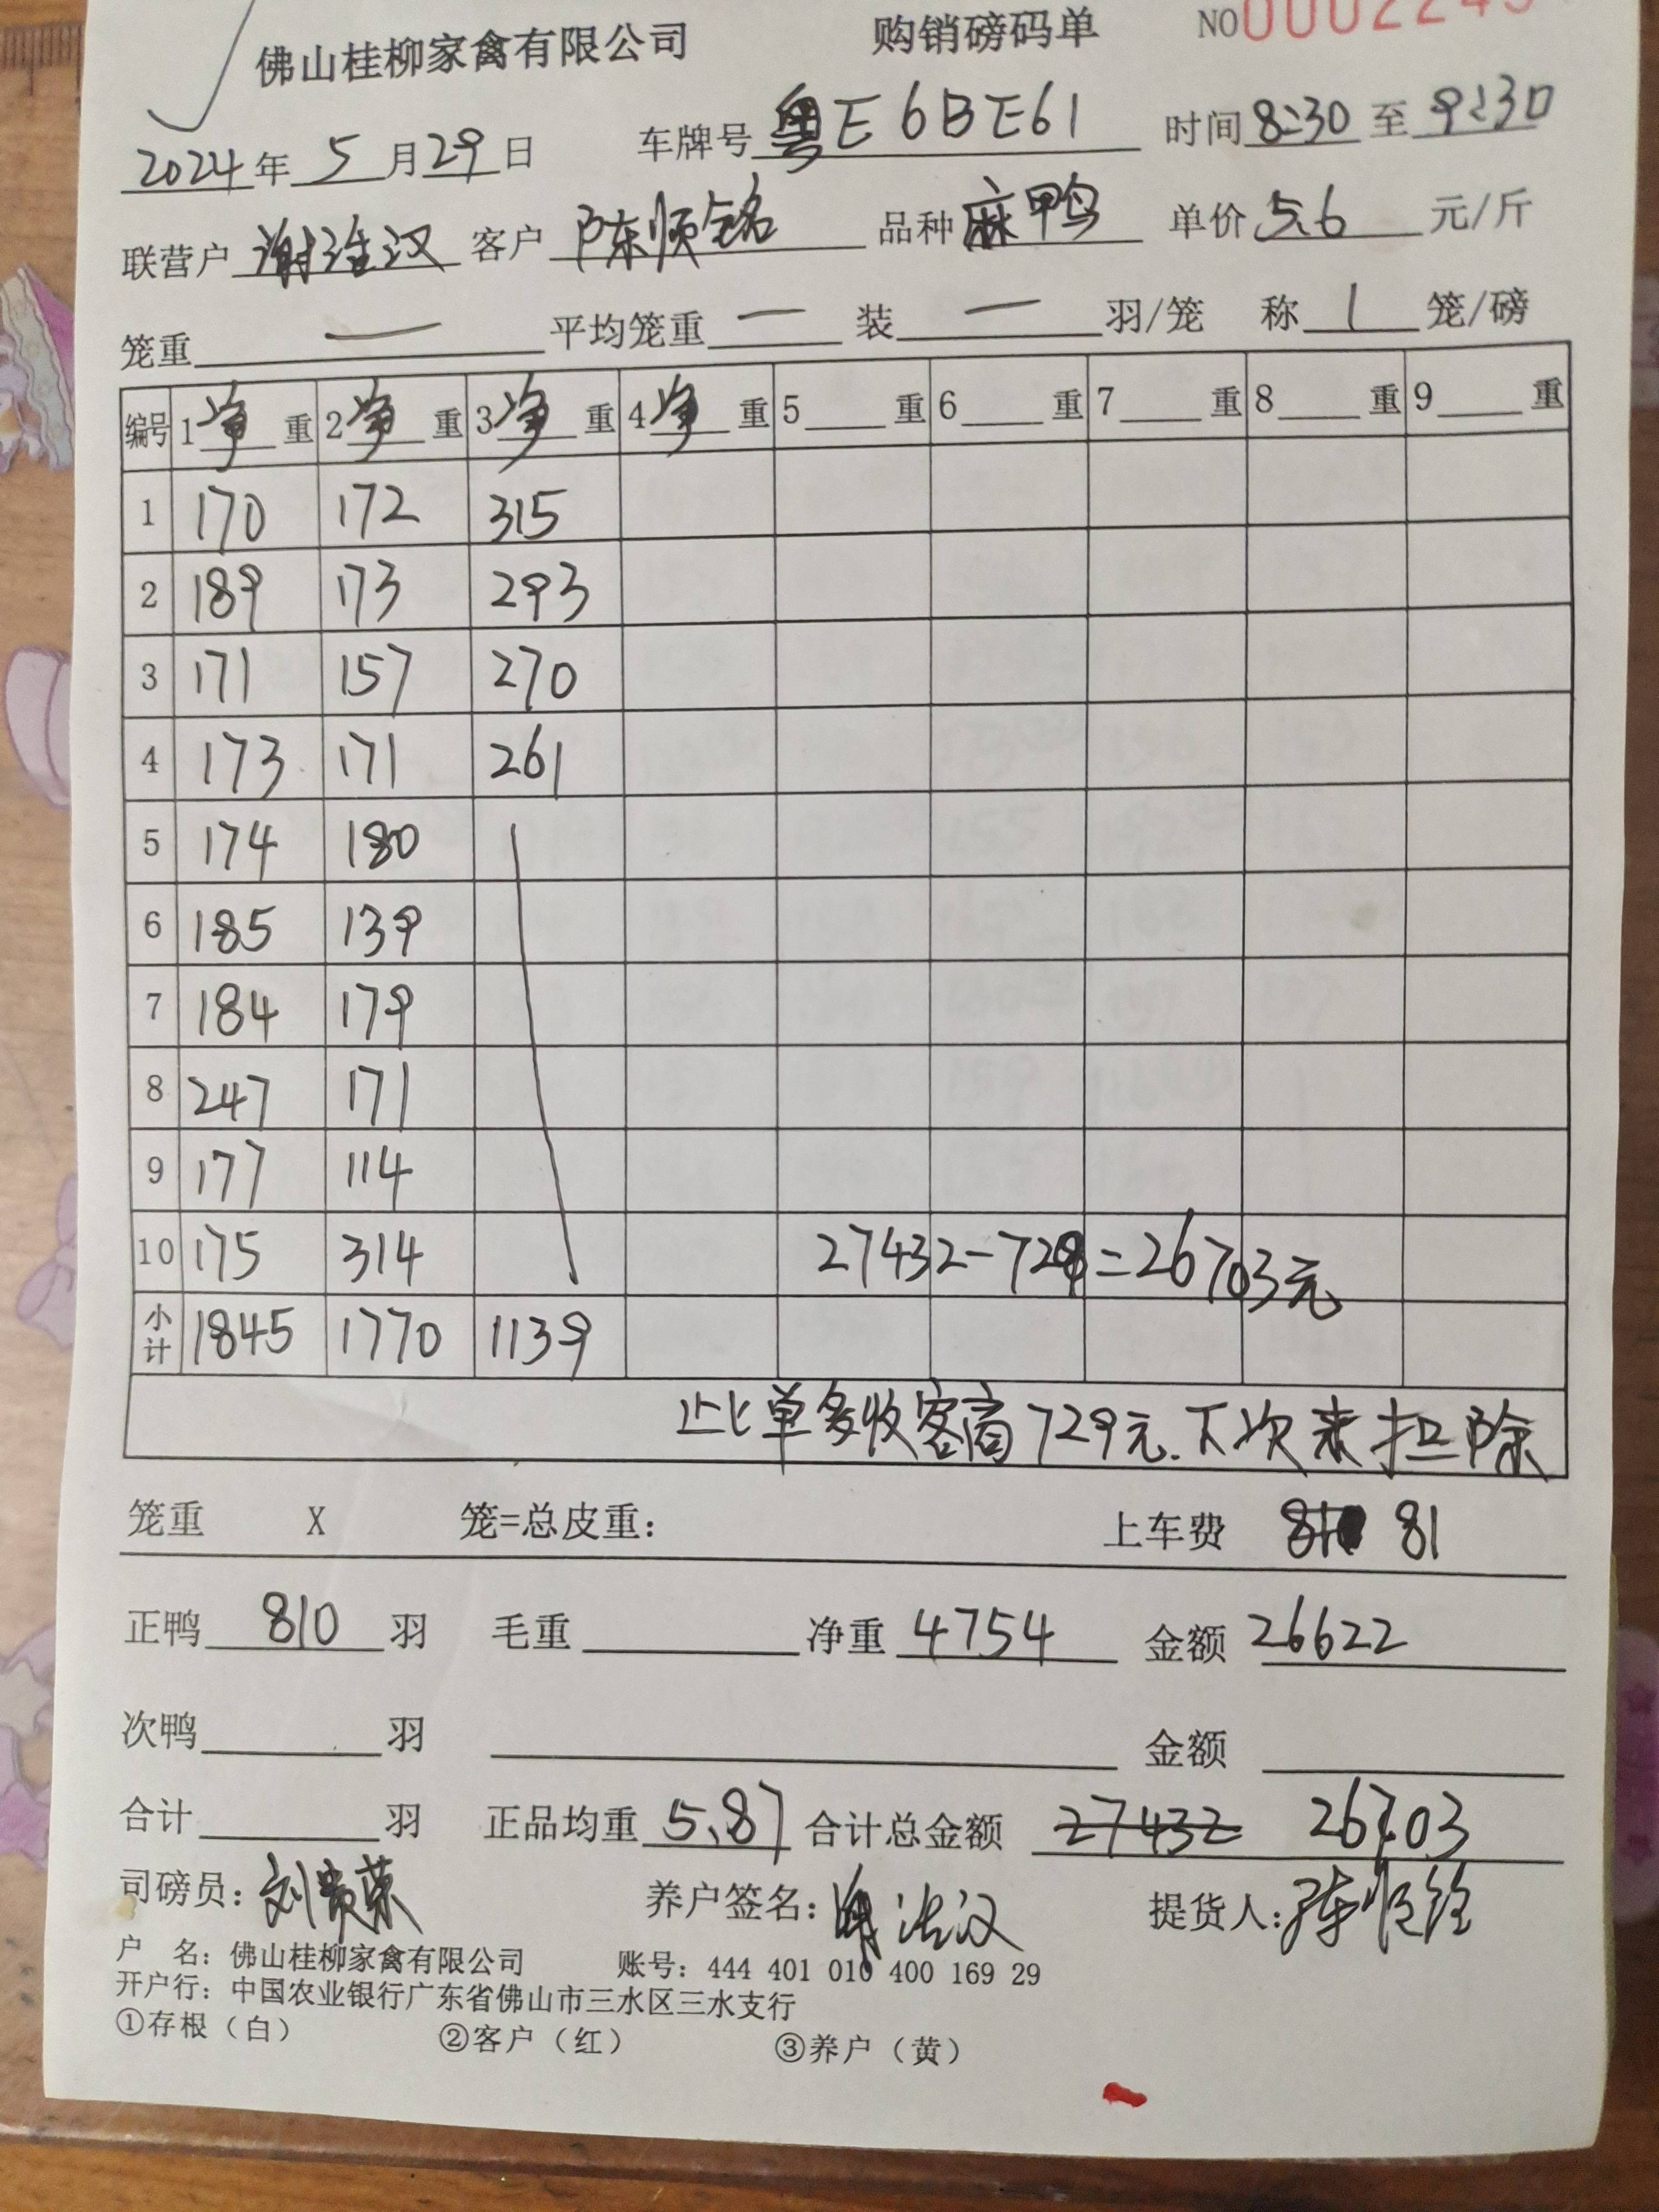 佛山桂柳家禽有限公司 购销磅码单 NO 0002245
2024年 5月29日 车牌号 粤E6BE61 时间 8:30 至 9:30
联营户 谢洼汉 客户 陈顺铭 品种 麻鸭 单价 5.6 元/斤
笼重 — 平均笼重 — 装 — 羽/笼 称 1 笼/磅
编号 1净重 2净重 3净重 4净重 5 重 6 重 7 重 8 重 9 重
1 170 172 315
2 189 173 293
3 171 157 270
4 173 171 261
5 174 180
6 185 139
7 184 179
8 247 171
9 177 114
10 175 314 27432-729=26703元
小计 1845 1770 1139
此单多收客商729元.下次来扣除
笼重 X 笼=总皮重: 上车费 81
正鸭 810 羽 毛重 净重 4754 金额 26622
次鸭 羽 金额
合计 羽 正品均重 5.87 合计总金额 27432 26703
司磅员:刘贵荣 养户签名: 提货人:
户 名: 佛山桂柳家禽有限公司 账号: 444 401 010 400 169 29
开户行: 中国农业银行广东省佛山市三水区三水支行
①存根（白） ②客户（红） ③养户（黄）